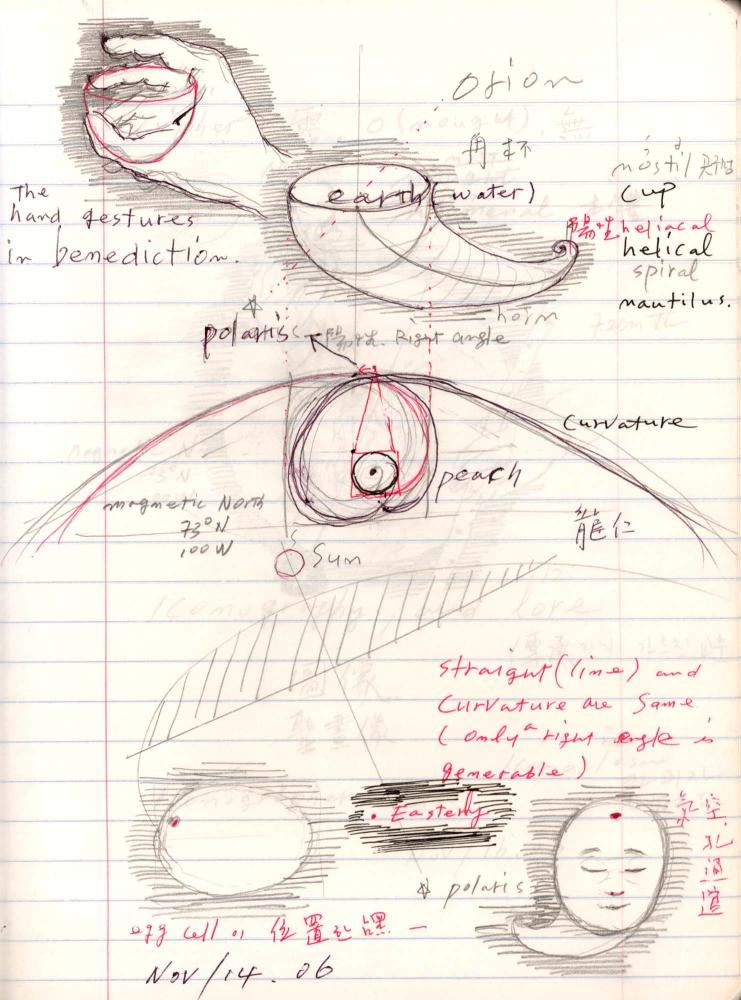 Orion
角杯
nostril 콧구멍
cup
earth (water)
陽性 heliacal
helical
spiral
nautilus.
The
hand gestures
in benediction.
horn
polaris 陽性. Right angle
curvature
peach
magnetic North
73°N
100W
龍仁
Sun
straight (line) and
curvature are same
(only a right angle is
generable)
Easterly
polaris
氣空孔通道
egg cell 의 位置한
Nov/14. 06